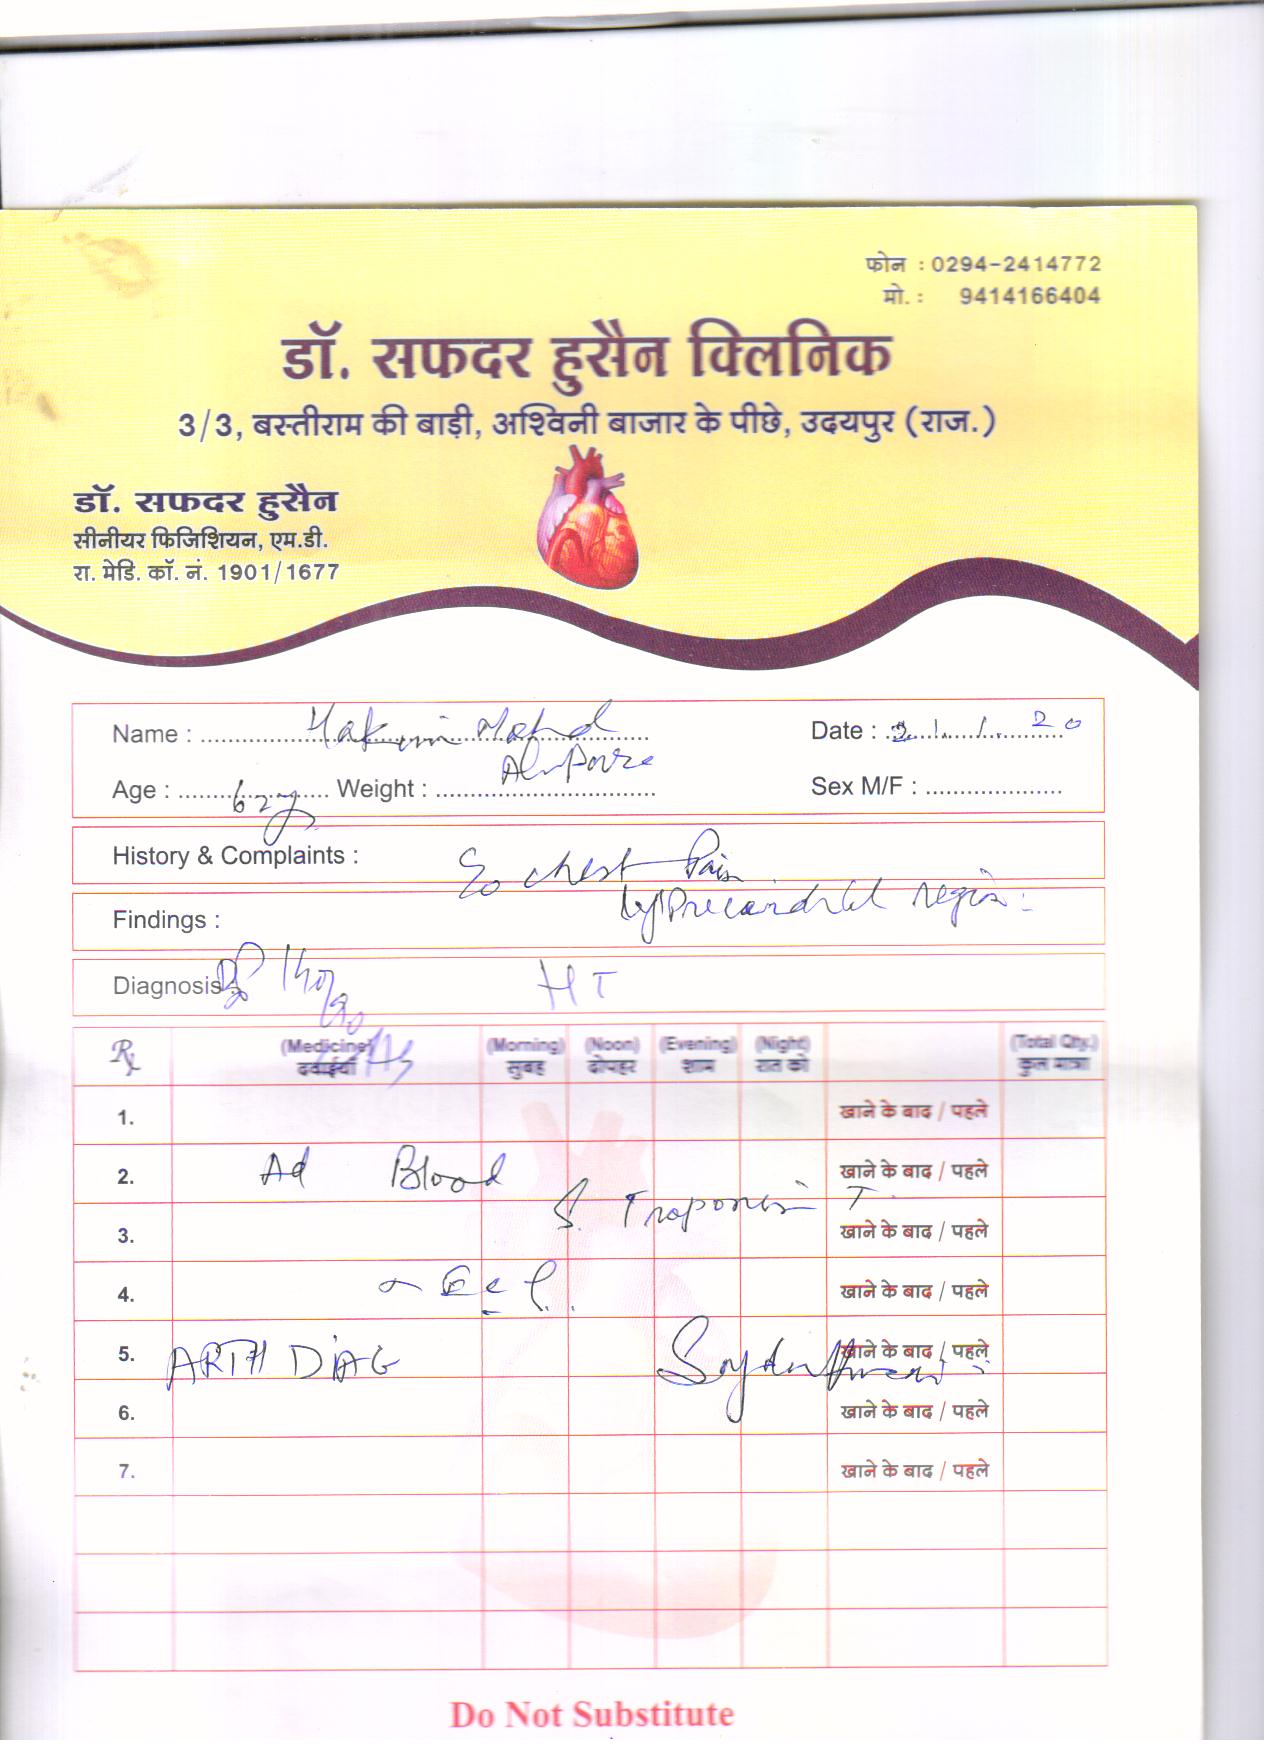 फोन : 0294-2414772
मो. : 9414166404
डॉ. सफदर हुसैन क्लिनिक
3/3, बस्तीराम की बाड़ी, अश्विनी बाजार के पीछे, उदयपुर (राज.)
डॉ. सफदर हुसैन
सीनीयर फिजिशियन, एम.डी.
रा. मेडि. कॉ. नं. 1901/1677
Name : Hakim Mohd Date : 2.1.20
Age : 62y Weight : Sex M/F :
History & Complaints : chest Pain
Precordial region
Findings :
Diagnosis HT
Rx (Medicine) दवाईयाँ (Morning) सुबह (Noon) दोपहर (Evening) शाम (Night) रात को (Total Qty.) कुल मात्रा
1. खाने के बाद / पहले
2. Ad Blood खाने के बाद / पहले
S. Troponin T
3. खाने के बाद / पहले
4. खाने के बाद / पहले
5. ARTH DIAG खाने के बाद / पहले
6. खाने के बाद / पहले
7. खाने के बाद / पहले
Do Not Substitute